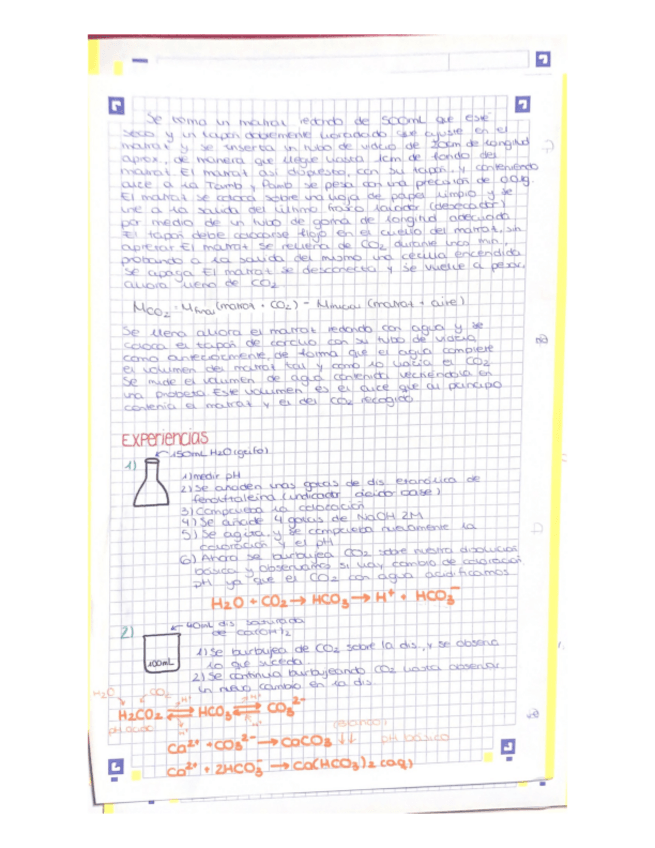 Se toma un matraz redondo de 500mL que esté
seco y un tapón doblemente horadado que ajuste en el
matraz y se inserta un tubo de vidrio de 20cm de longitud
aprox., de manera que llegue hasta 1cm de fondo del
matraz. El matraz así dispuesto, con su tapón, y conteniendo
aire a la Tamb y Pamb se pesa con una precisión de 0.01g.
El matraz se coloca sobre una hoja de papel limpio y se
une a la salida del último frasco lavador (desecador)
por medio de un tubo de goma de longitud adecuada
El tapón debe colocarse flojo en el cuello del matraz, sin
apretar. El matraz se rellena de CO2 durante unos min,
probando a la salida del mismo una cerilla encendida
se apaga. El matraz se desconecta y se vuelve a pesar,
ahora lleno de CO2
MCO2 = Mfinal (matraz + CO2) - Minicial (matraz + aire)
Se llena ahora el matraz redondo con agua y se
coloca el tapón de corcho con su tubo de vidrio
como anteriormente, de forma que el agua complete
el volumen del matraz tal y como lo hacía el CO2
Se mide el volumen de agua contenida vertiéndola en
una probeta. Este volumen es el aire que al principio
contenía el matraz y el del CO2 recogido
Experiencias
150mL H2O (grifo)
1)
1) medir pH
2) Se añaden unas gotas de dis. etanólica de
fenolftaleína (indicador ácido-base)
3) Comprueba la coloración
4) Se añade 4 gotas de NaOH 2M
5) Se agita y se comprueba nuevamente la
coloración y el pH
6) Ahora se burbujea CO2 sobre nuestra disolución
básica y observamos si hay cambio de coloración
pH ya que el CO2 con agua acidificamos
H2O + CO2 → HCO3 → H+ + HCO3-
2)
40mL dis saturada
de Ca(OH)2
100mL
1) Se burbujea de CO2 sobre la dis., y se observa
lo que suceda
2) Se continua burbujeando CO2 hasta observar
un nuevo cambio en la dis.
H2O CO2
H2CO2 ⇌ HCO3 ⇌ CO3 2-
pH ácido
(Blanco)
Ca2+ + CO3 2- → CaCO3 ↓↓ pH básico
Ca2+ + 2HCO3- → Ca(HCO3)2 (aq)